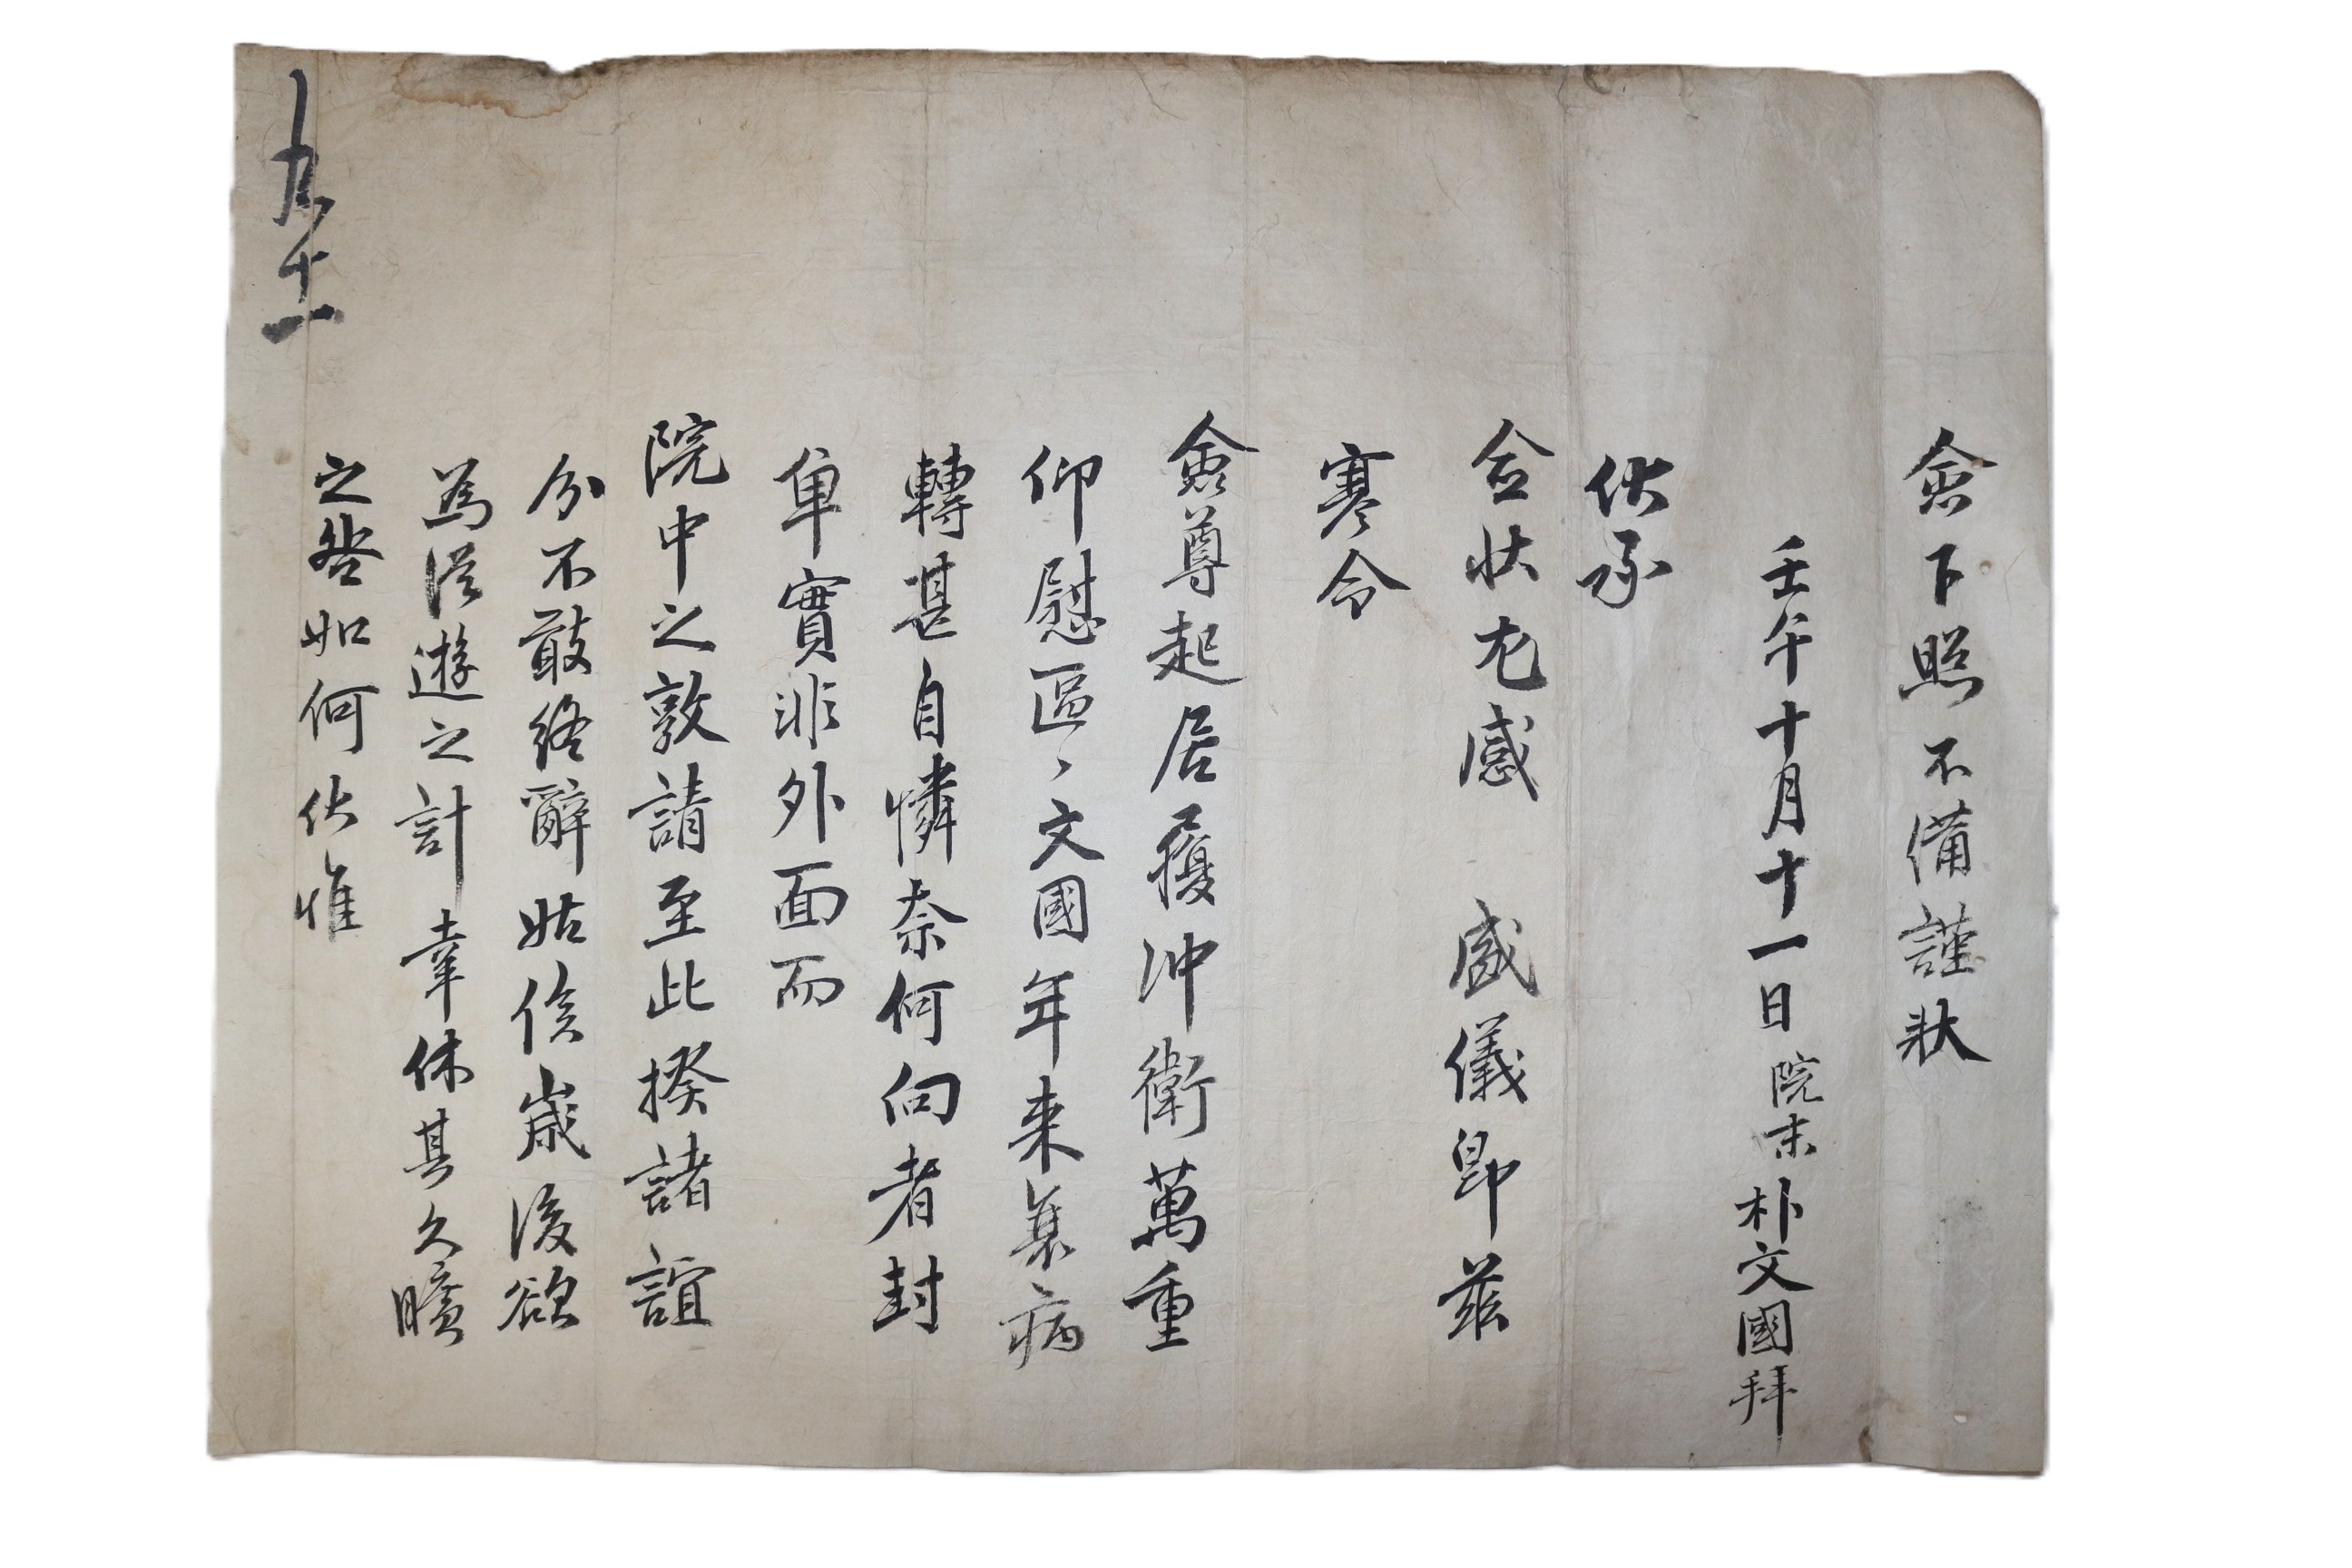 僉下照不備謹狀
壬午十月十一日院末朴文國拜
伏承
僉狀尤感 盛儀卽茲
寒令
僉尊起居履沖衛萬重
仰慰區〻文國年来衰病
轉甚自憐奈何向者封
單實非外面而
院中之敦請至此揆諸誼
分不敢終辭姑俟歲後欲
為從遊之計幸休其久曠
之咎如何伏惟
九十一